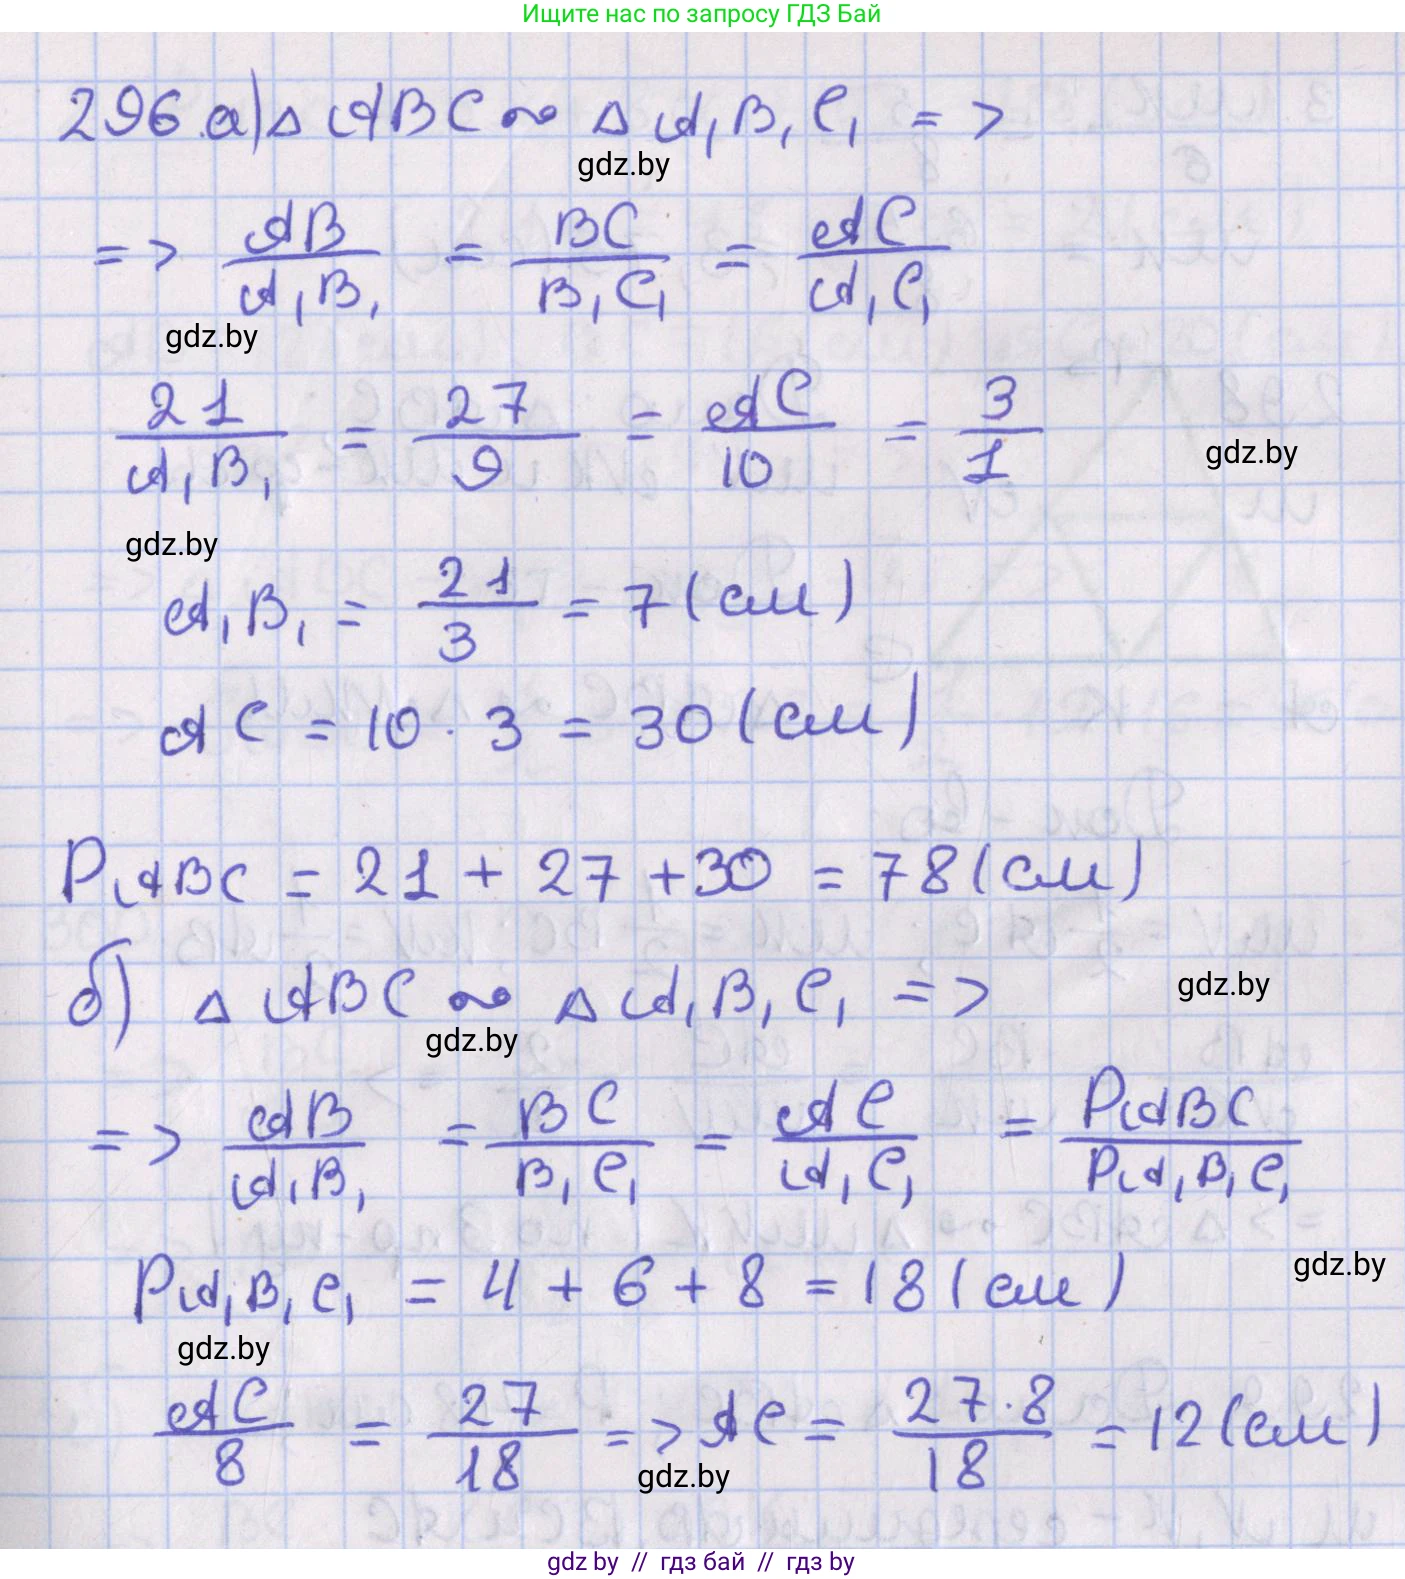 Ищите нас по запросу ГДЗ Бай
296. а) △ ABC ∾ △ A₁B₁C₁ =>
gdz.by
=> AB/A₁B₁ = BC/B₁C₁ = AC/A₁C₁
gdz.by
21/A₁B₁ = 27/9 = AC/10 = 3/1
gdz.by
gdz.by
A₁B₁ = 21/3 = 7 (см)
AC = 10 · 3 = 30 (см)
P△ABC = 21 + 27 + 30 = 78 (см)
б) △ ABC ∾ △ A₁B₁C₁ =>
gdz.by
gdz.by
=> AB/A₁B₁ = BC/B₁C₁ = AC/A₁C₁ = P△ABC/P△A₁B₁C₁
P△A₁B₁C₁ = 4 + 6 + 8 = 18 (см)
gdz.by
gdz.by
AC/8 = 27/18 => AC = 27·8/18 = 12 (см)
gdz.by
gdz by // гдз бай // гдз by